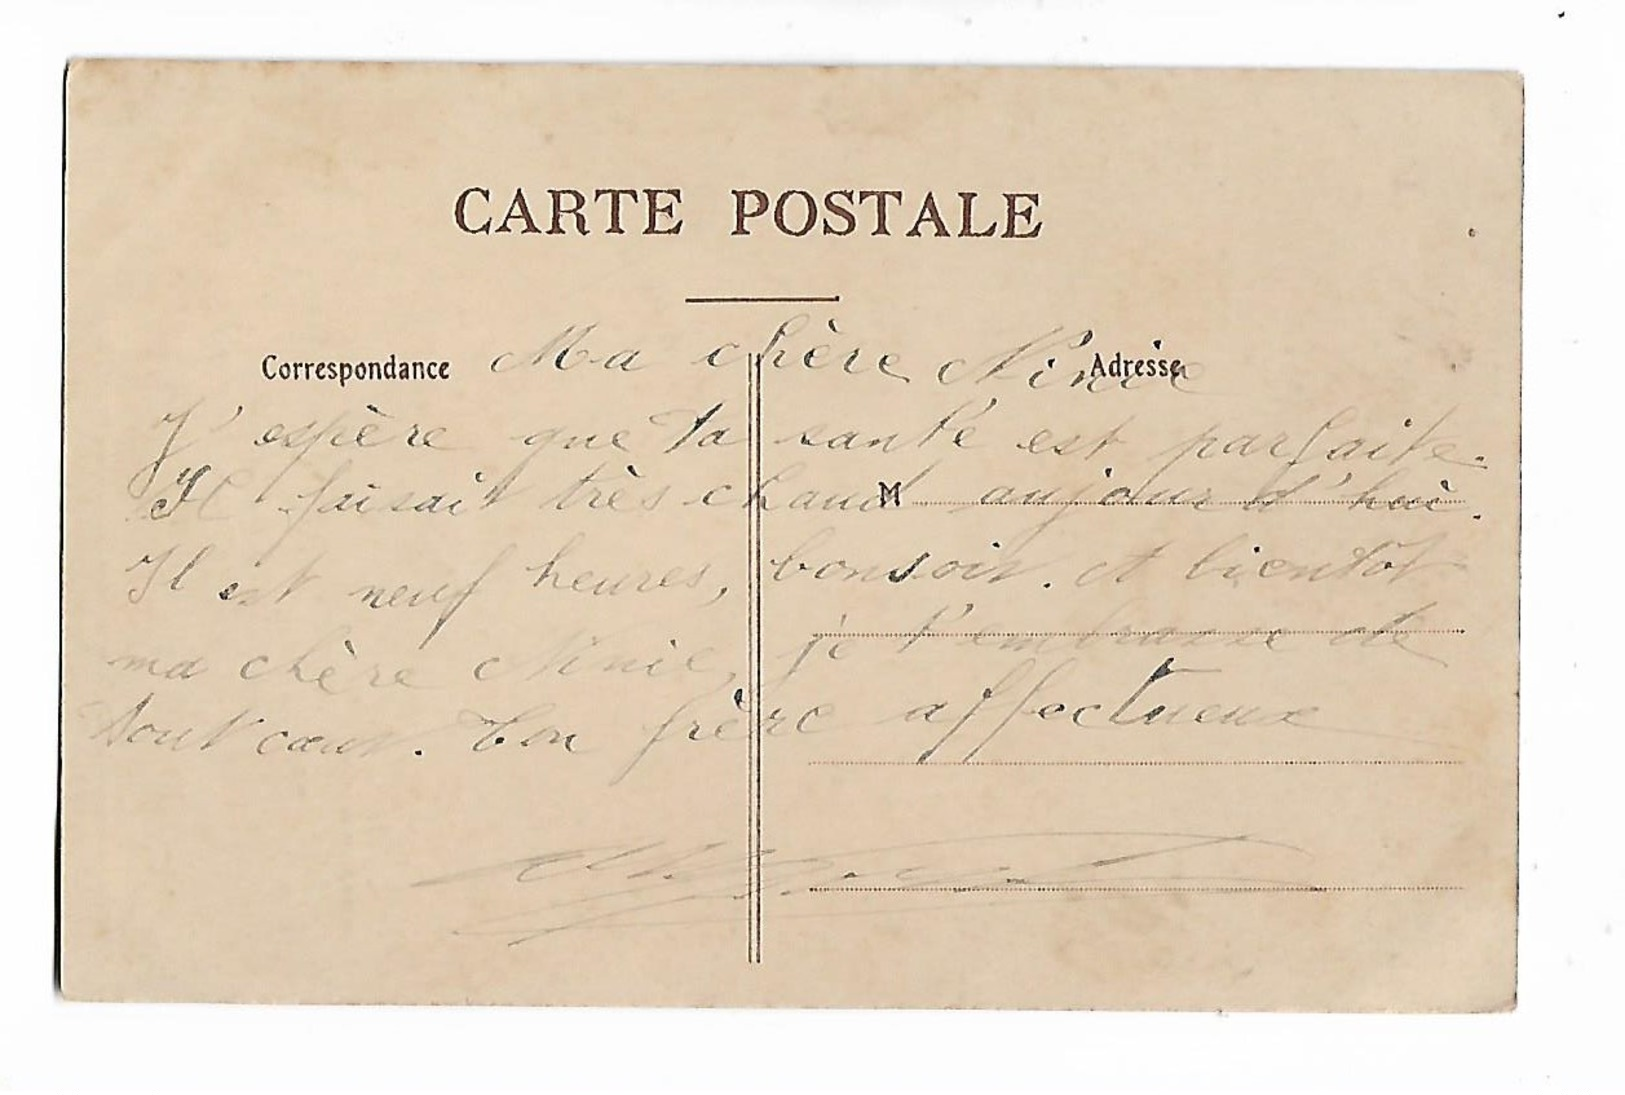 CARTE POSTALE
Correspondance
Adresse
M
Ma chère Ninie
J'espère que ta santé est parfaite.
Il faisait très chaud aujour d'hui.
Il est neuf heures, bonsoir. et bientôt
ma chère Ninie, je t'embrasse de
tout cœur. Ton frère affectueux